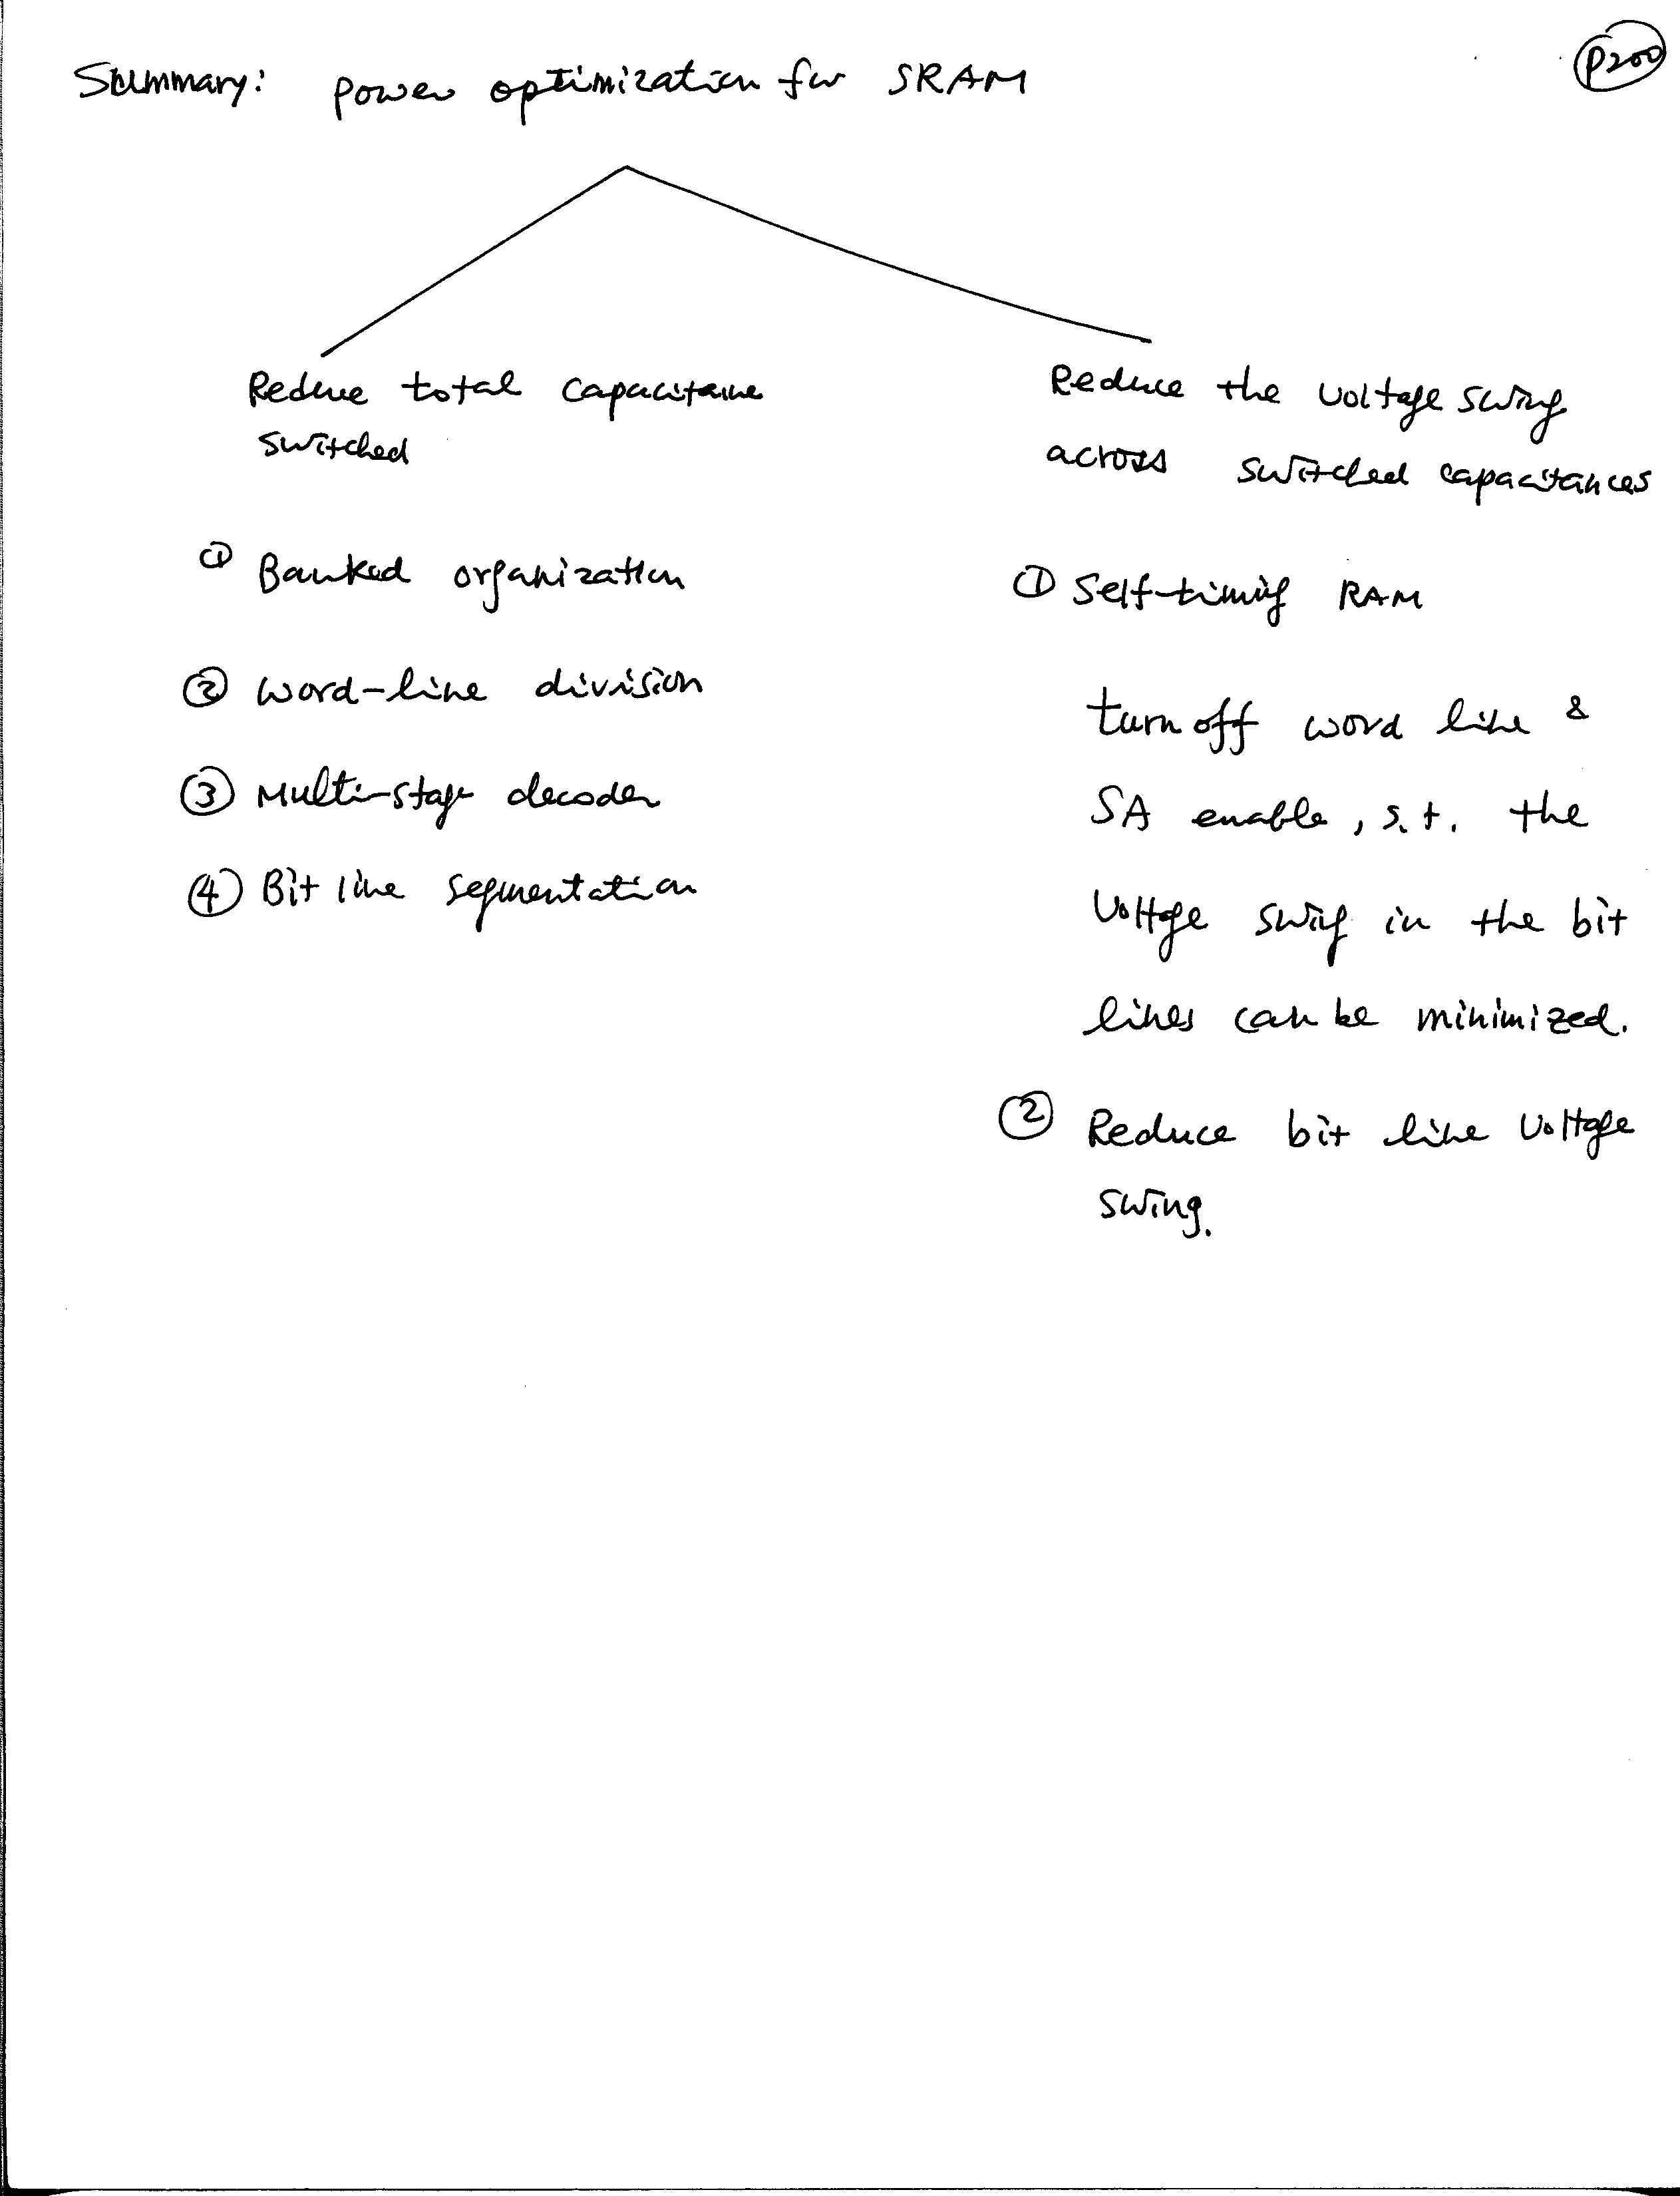 P200
Summary: Power optimization for SRAM
Reduce total capacitance
switched
① Banked organization
② word-line division
③ Multi-stage decoder
④ Bit line segmentation
Reduce the voltage swing
across switched capacitances
① Self-timing RAM
turn off word line &
SA enable, s.t. the
voltage swing in the bit
lines can be minimized.
② Reduce bit line voltage
swing.